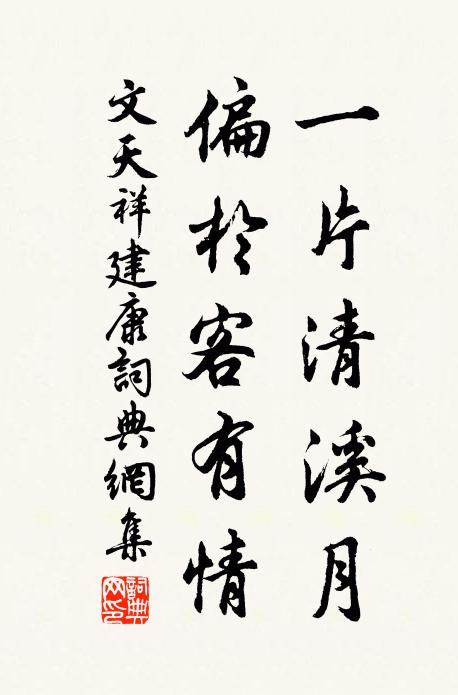 一片清溪月
偏於客有情
文天祥建康詞典網集
詞典網印